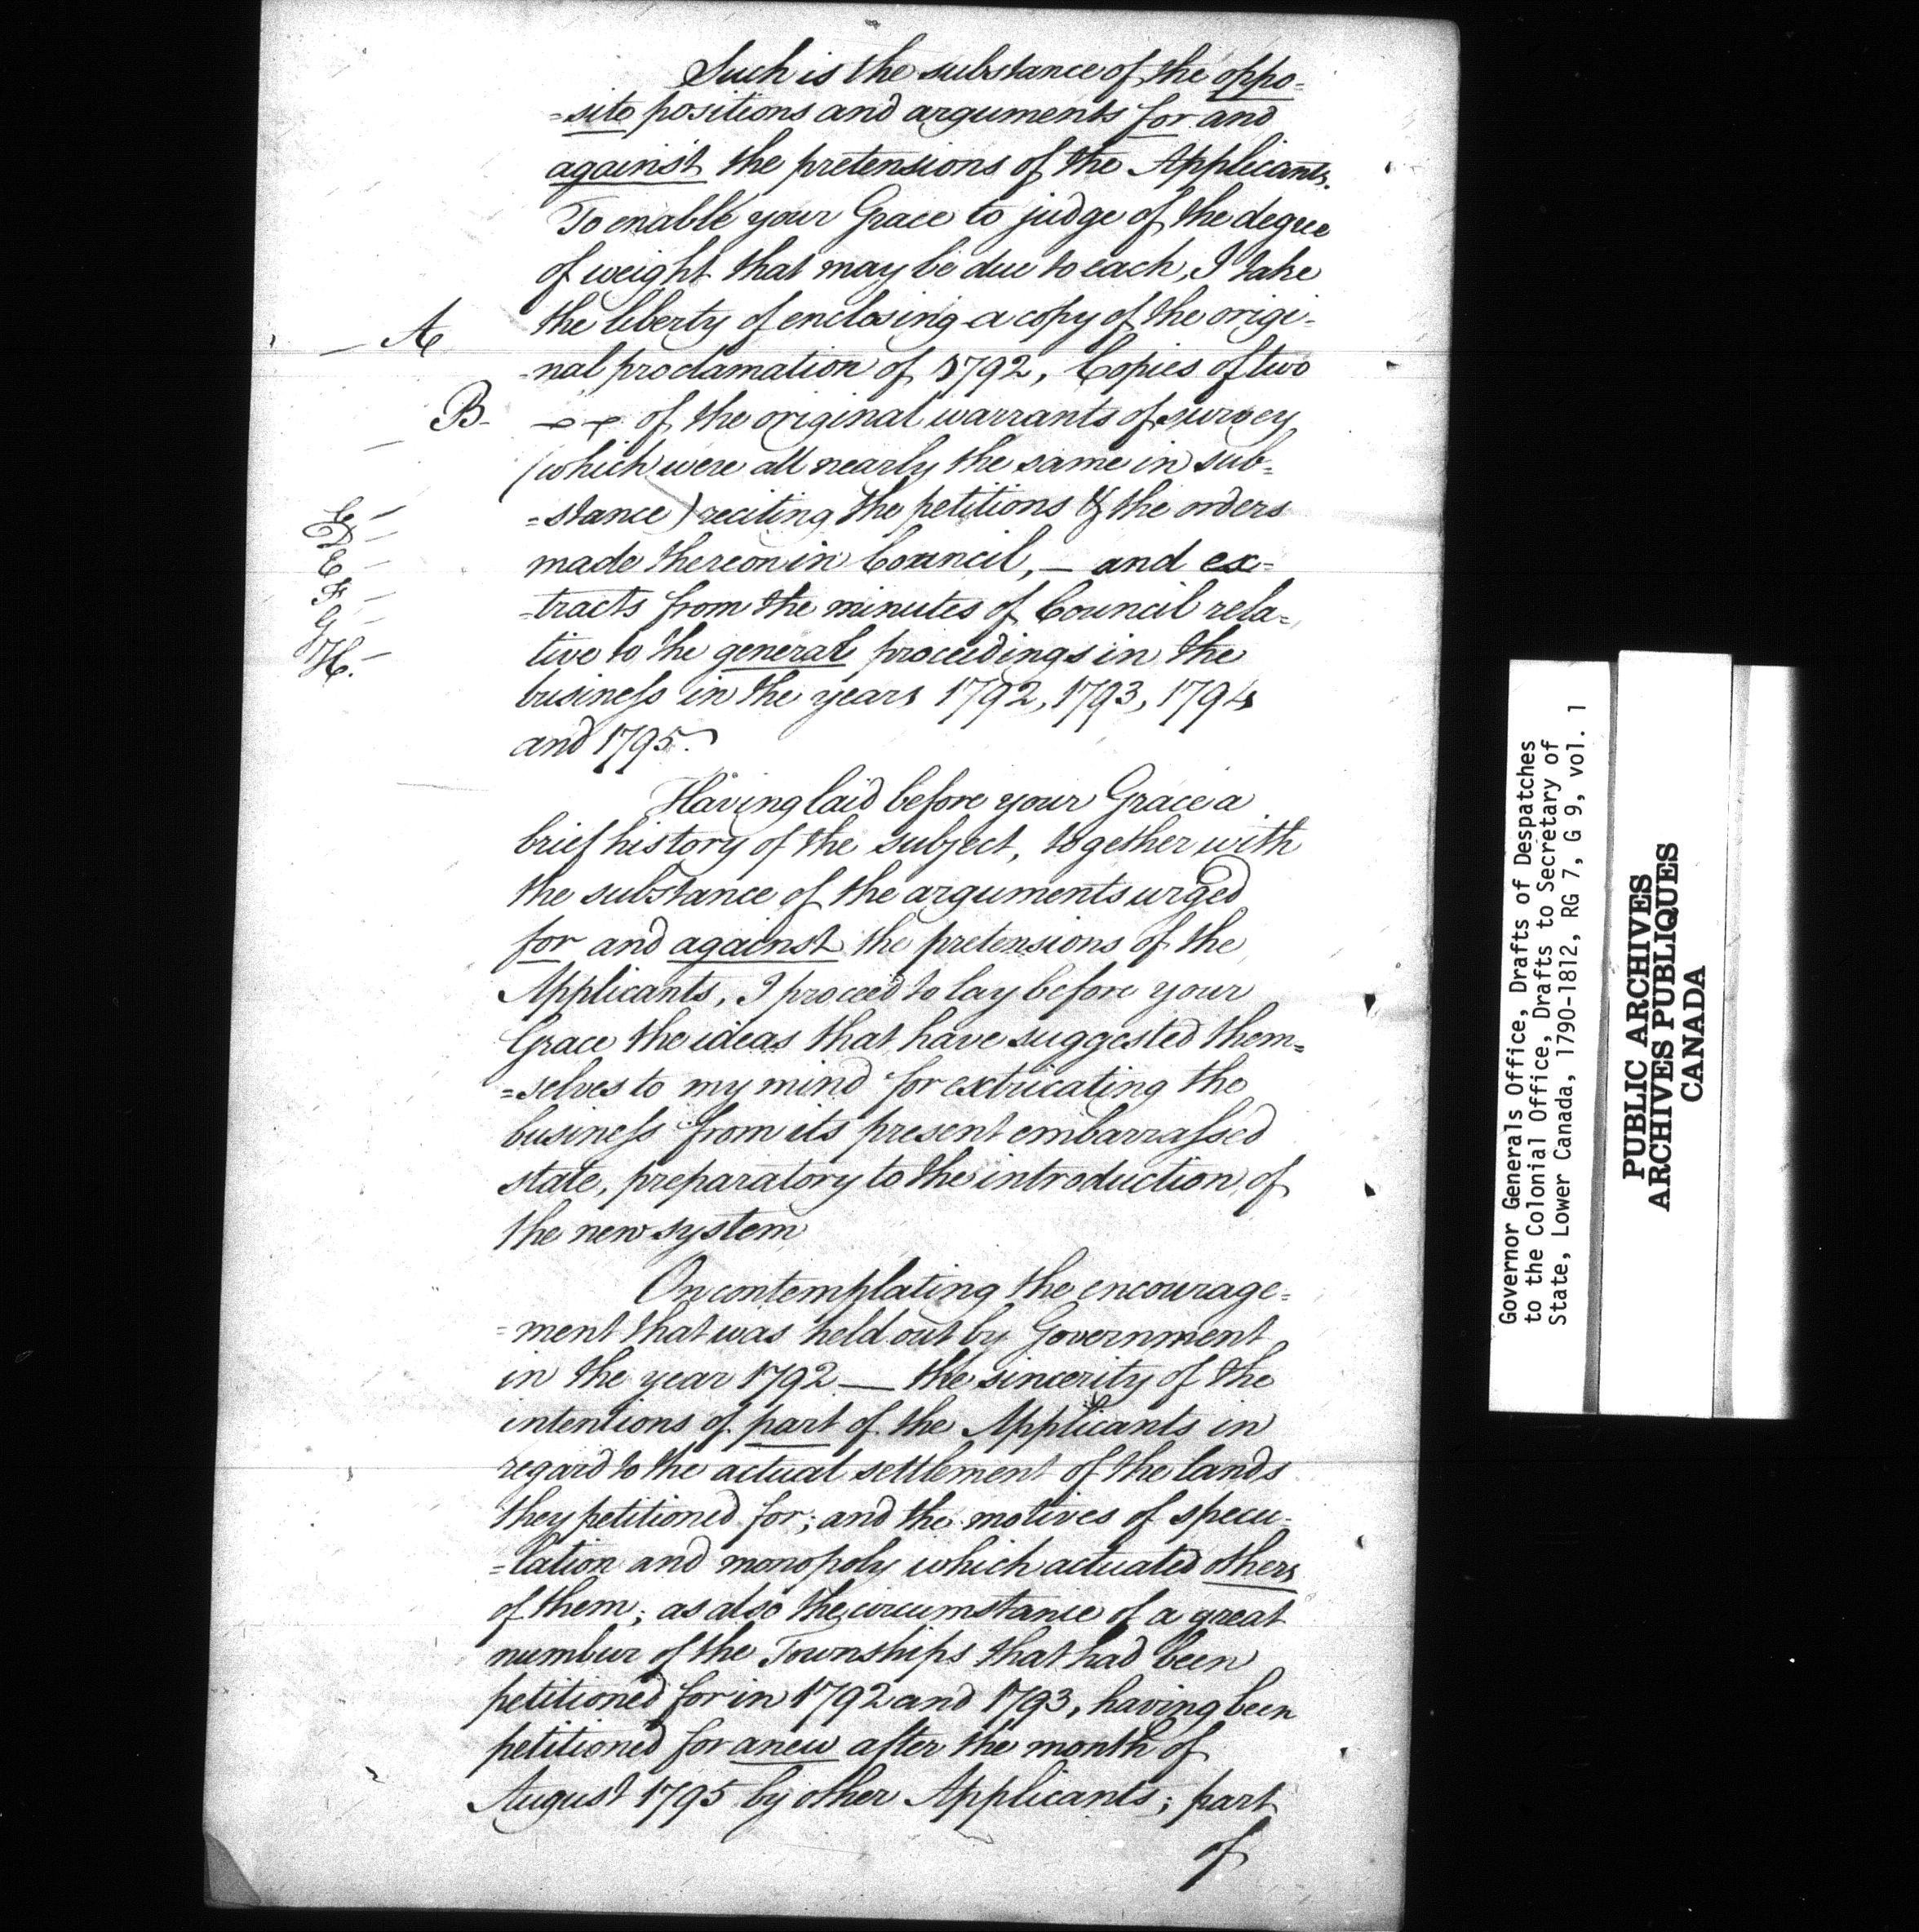 Such is the substance of the oppo-
=site positions and arguments for and
against the pretensions of the Applicants.
To enable your Grace to judge of the degree
of weight that may be due to each, I take
A
the liberty of enclosing a copy of the origi-
-nal proclamation of 1792, Copies of two
B-
of the original warrants of survey
(which were all nearly the same in sub=
=stance) reciting the petitions & the orders
C
D
E
F
G
H.
made thereon in Council, — and ex=
-tracts from the minutes of Council rela=
tive to the general proceedings in the
business in the years 1792, 1793, 1794
and 1795.
Having laid before your Grace a
brief history of the subject, together with
the substance of the arguments urged
for and against the pretensions of the
Applicants, I proceed to lay before your
Grace the ideas that have suggested them=
=selves to my mind for extricating the
business from its present embarrassed
state, preparatory to the introduction of
the new system
On contemplating the encourage=
=ment that was held out by Government
in the year 1792 — the sincerity of the
intentions of part of the Applicants in
regard to the actual settlement of the lands
they petitioned for; and the motives of specu-
=lation and monopoly which actuated others
of them; as also the circumstance of a great
number of the Townships that had been
petitioned for in 1792 and 1793, having been
petitioned for anew after the month of
August 1795 by other Applicants; part
of
Governor Generals Office, Drafts of Despatches
to the Colonial Office, Drafts to Secretary of
State, Lower Canada, 1790-1812, RG 7, G 9, vol. 1
PUBLIC ARCHIVES
ARCHIVES PUBLIQUES
CANADA